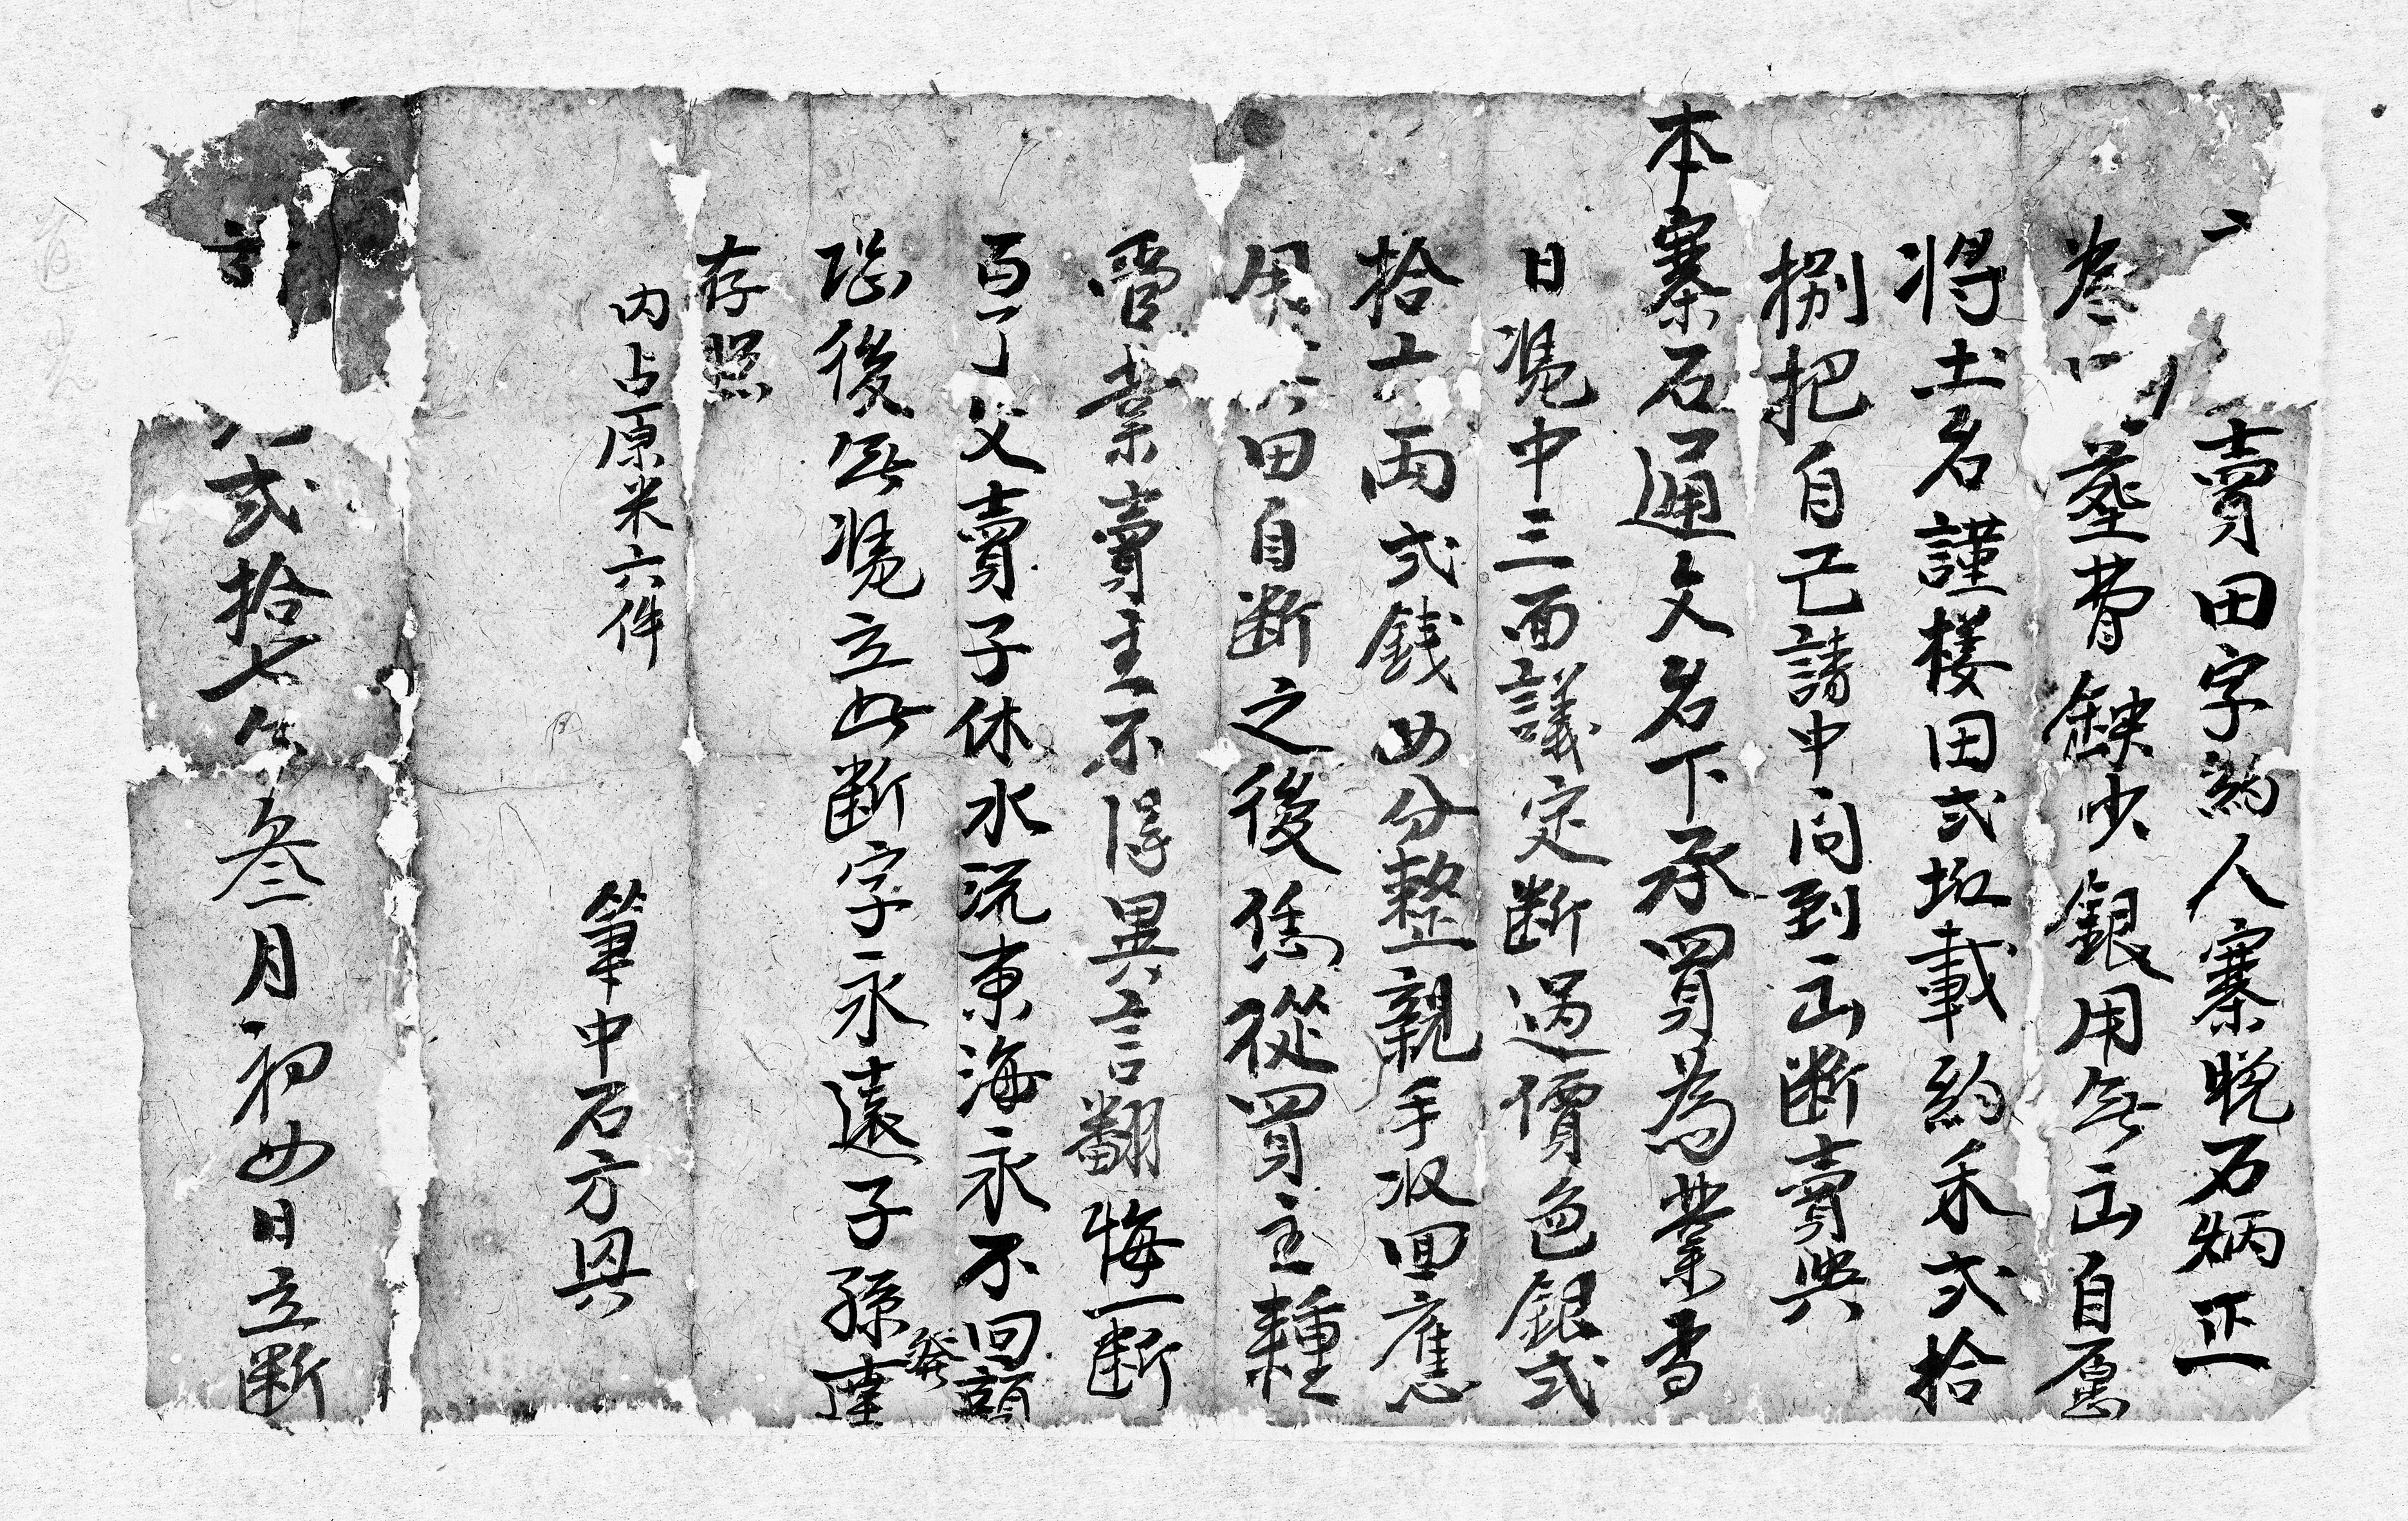 賣田字約人寨晚石炳正
為 塟費缺少銀用無出自愿
将土名謹樓田弍坵載約禾弍拾
捌把自己請中问到出断賣與
本寨石通文名下承買為業当
日凴中三面議定断過價色銀弍
拾六两弍銭四分整親手収回應
用 田自断之後恁從買主耕種
管業賣主不得異言翻悔一断
百了父賣子休水流東海永不回頭
恐後無凴立此断字永遠子孫發達
存照
内占原米六件
筆中石方興
弍拾七年叁月初四日立断